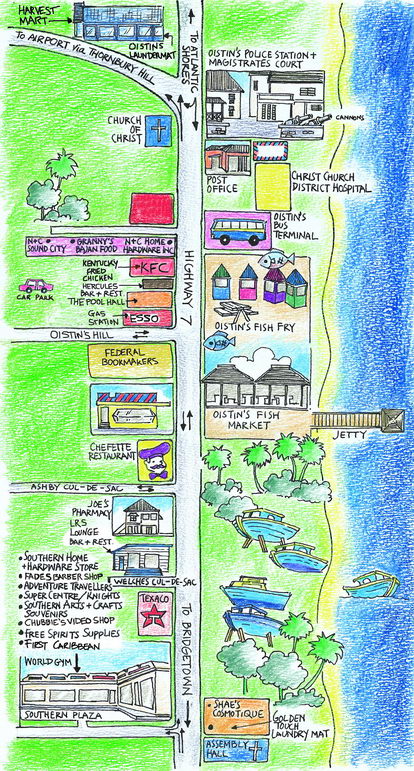 HARVEST
MART
OISTINS
LAUNDERMAT
TO AIRPORT VIA THORNBURY HILL
TO ATLANTIC
SHORES
OISTIN'S POLICE STATION +
MAGISTRATES COURT
CANNONS
CHURCH
OF
CHRIST
POST
OFFICE
CHRIST CHURCH
DISTRICT HOSPITAL
OISTIN'S
BUS
TERMINAL
N+C
SOUND CITY
GRANNY'S
BAJAN FOOD
N+C HOME
HARDWARE INC
KENTUCKY
FRIED
CHICKEN
KFC
HERCULES
BAR + REST
THE POOL HALL
CAR PARK
GAS
STATION
ESSO
HIGHWAY 7
OISTIN'S FISH FRY
OISTIN'S HILL
FEDERAL
BOOKMAKERS
OISTIN'S FISH
MARKET
JETTY
CHEFETTE
RESTAURANT
ASHBY CUL-DE-SAC
JOE'S
PHARMACY
LRS
LOUNGE
BAR + REST.
WELCHES CUL-DE-SAC
• SOUTHERN HOME
+ HARDWARE STORE
• FADES BARBER SHOP
• ADVENTURE TRAVELLERS
• SUPER CENTRE/KNIGHTS
• SOUTHERN ARTS + CRAFTS
SOUVENIRS
• CHUBBIE'S VIDEO SHOP
• FREE SPIRITS SUPPLIES
• FIRST CARIBBEAN
TEXACO
TO BRIDGETOWN
WORLD GYM
SOUTHERN PLAZA
• SHAE'S
COSMOTIQUE
GOLDEN
TOUCH
LAUNDRY MAT
ASSEMBLY
HALL